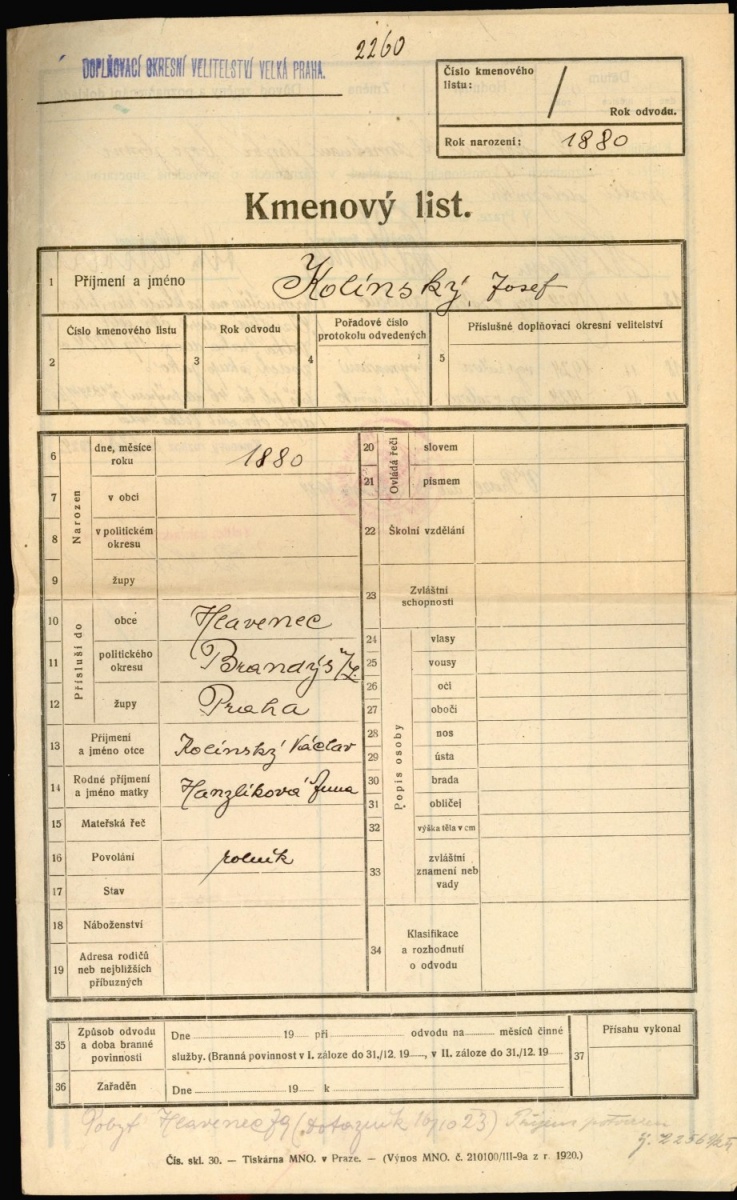 2260
DOPLŇOVACÍ OKRESNÍ VELITELSTVÍ VELKÁ PRAHA.
Číslo kmenového
listu:
/
Rok odvodu.
Rok narození: 1880
Kmenový list.
1 Příjmení a jméno Kolínský, Josef
2 Číslo kmenového listu
3 Rok odvodu
4 Pořadové číslo
protokolu odvedených
5 Příslušné doplňovací okresní velitelství
Narozen
6 dne, měsíce
roku 1880
7 v obci
8 v politickém
okresu
9 župy
Přísluší do
10 obce Hlavenec
11 politického
okresu Brandýs n/L.
12 župy Praha
13 Příjmení
a jméno otce Kolínský Václav
14 Rodné příjmení
a jméno matky Hanzlíková Anna
15 Mateřská řeč
16 Povolání rolník
17 Stav
18 Náboženství
19 Adresa rodičů
neb nejbližších
příbuzných
Ovládá řeči
20 slovem
21 písmem
22 Školní vzdělání
23 Zvláštní
schopnosti
Popis osoby
24 vlasy
25 vousy
26 oči
27 obočí
28 nos
29 ústa
30 brada
31 obličej
32 výška těla v cm
33 zvláštní
znamení neb
vady
34 Klasifikace
a rozhodnutí
o odvodu
35 Způsob odvodu
a doba branné
povinnosti
Dne 19 při odvodu na měsíců činné
služby. (Branná povinnost v I. záloze do 31./12. 19, v II. záloze do 31./12. 19
36 Zařaděn Dne 19 k
37 Přísahu vykonal
Pobyt Hlavenec 79 (dotazník 16/10 23)
Čís. skl. 30. — Tiskárna MNO. v Praze. — (Výnos MNO. č. 210100/III-9a z r. 1920.)